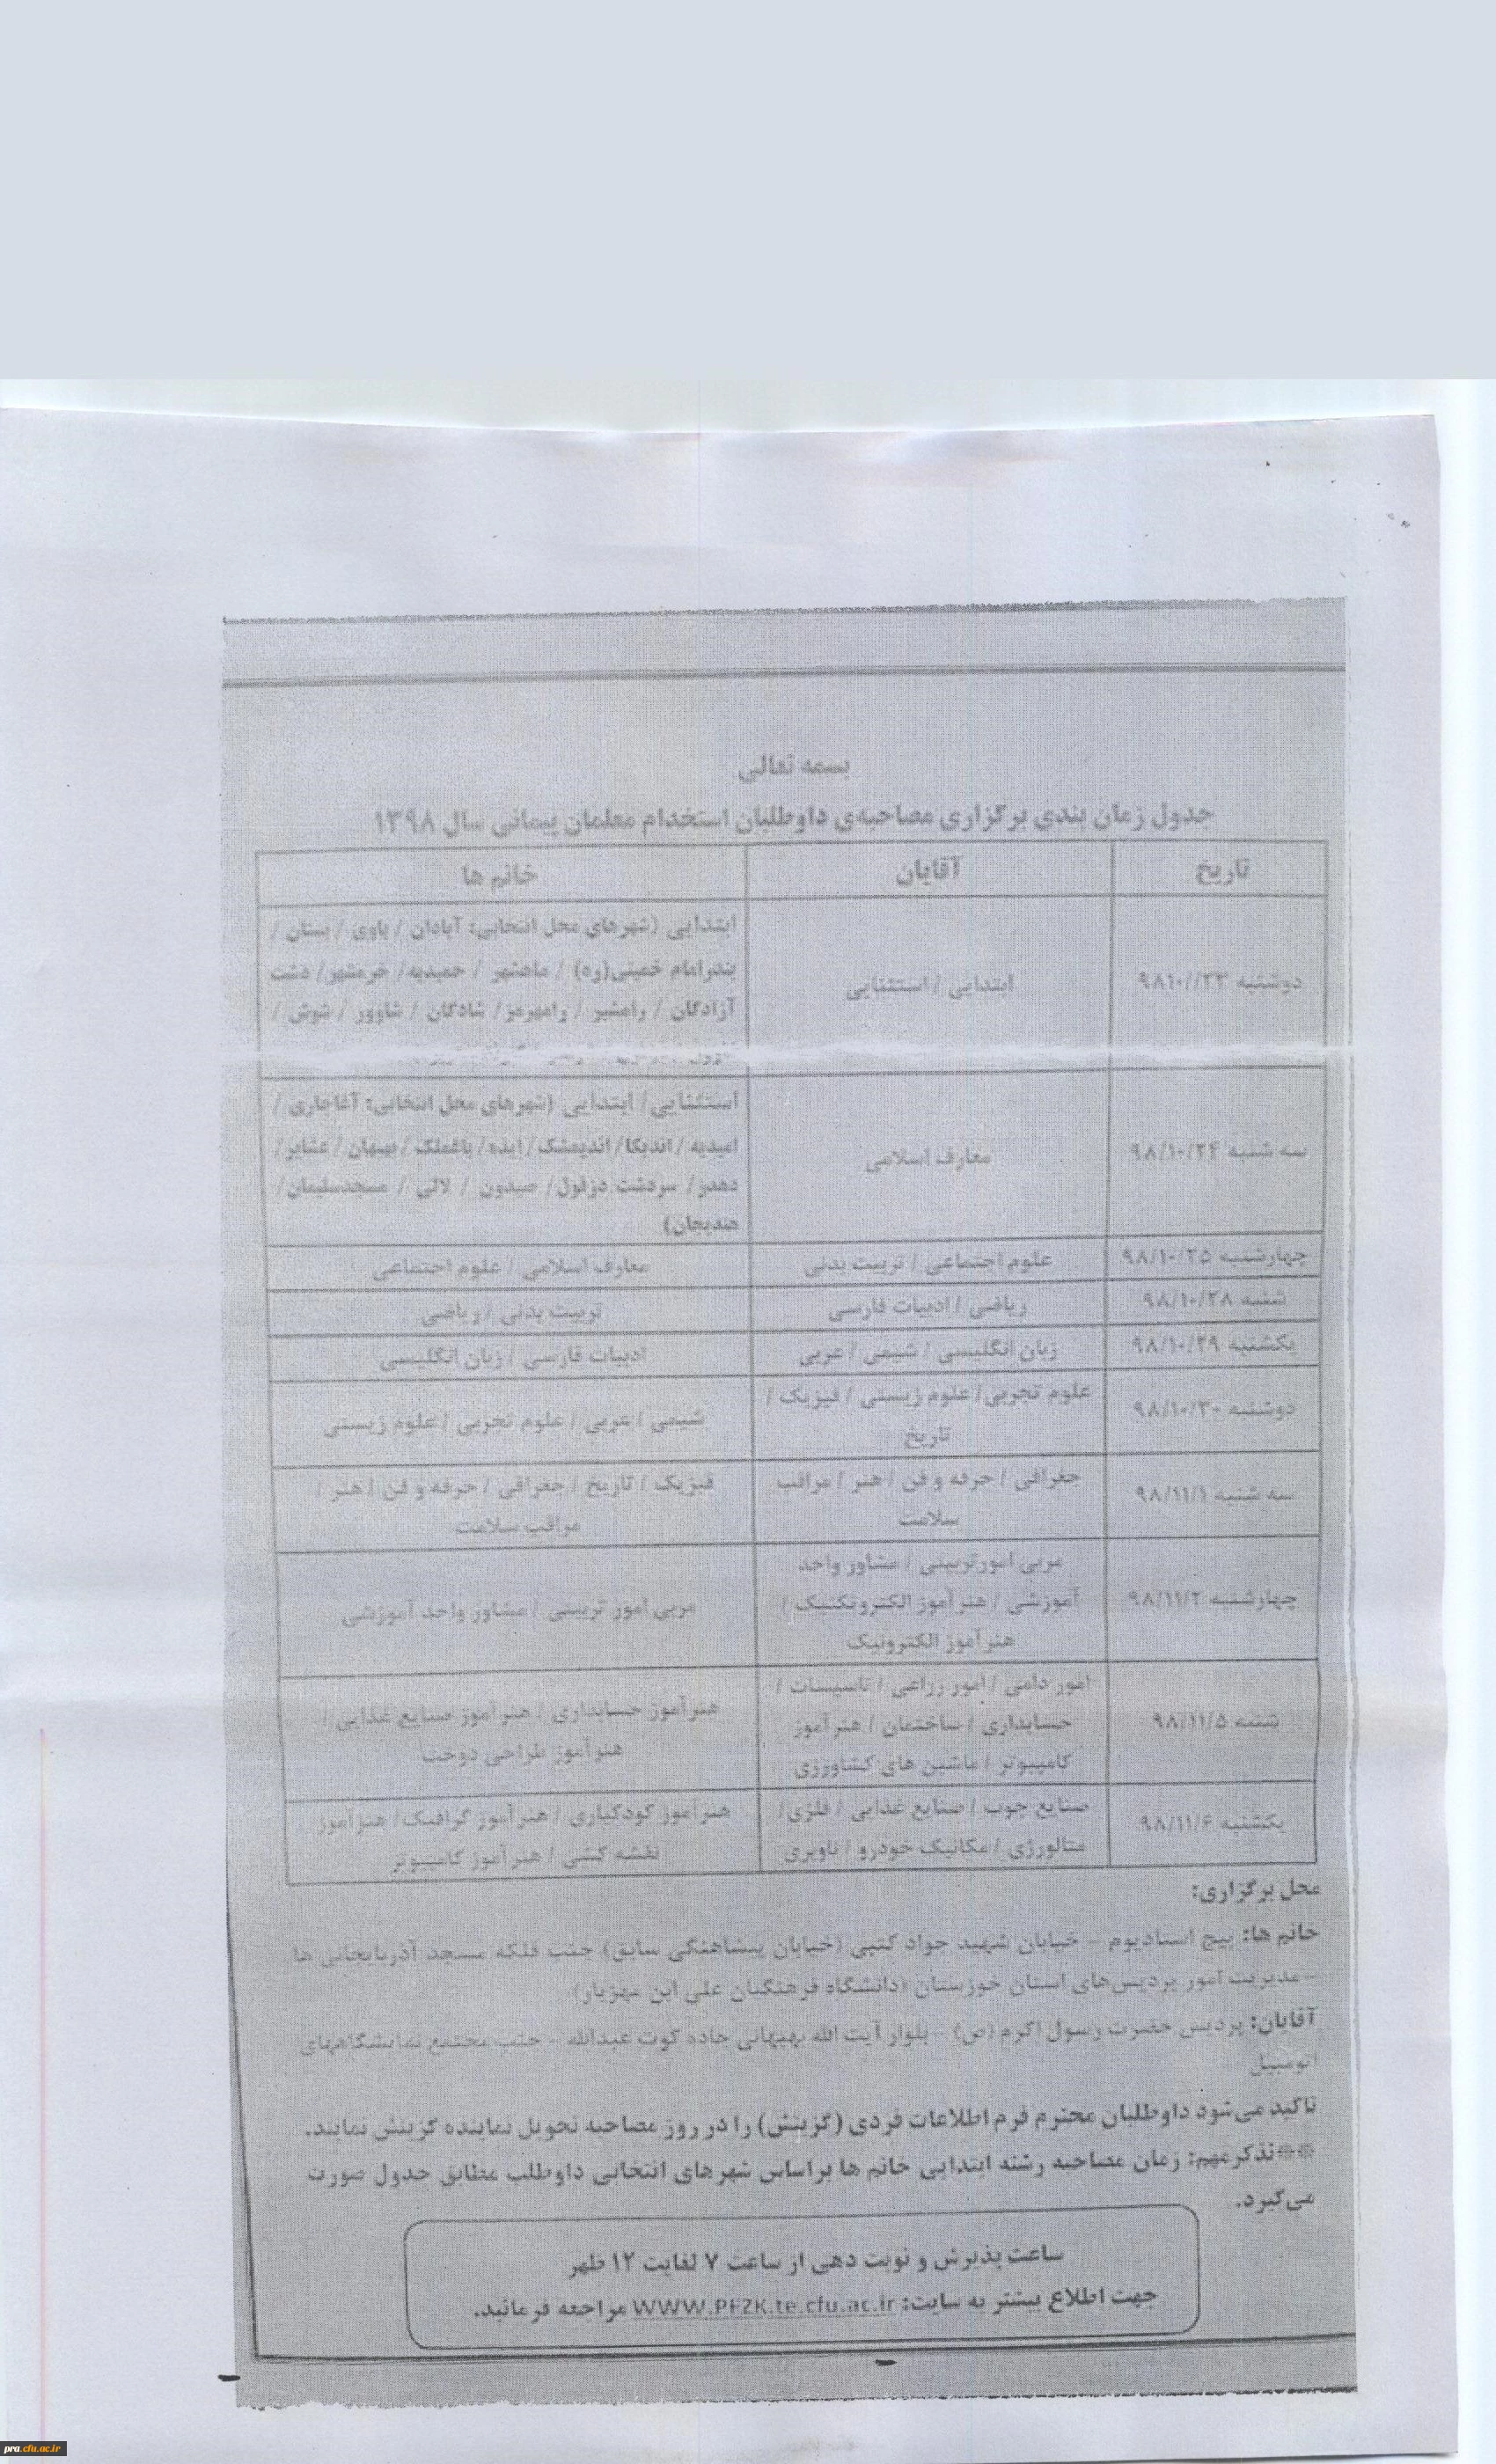 بسمه تعالی
جدول زمان بندی برگزاری مصاحبه‌ی داوطلبان استخدام معلمان پیمانی سال ۱۳۹۸
تاریخ آقایان خانم ها
دوشنبه ۹۸۱۰//۲۳ ابتدایی / استثنایی ابتدایی (شهرهای محل انتخابی: آبادان / باوی / بستان /
بندرامام خمینی(ره) / ماهشهر / حمیدیه/ خرمشهر/ دشت
آزادگان / رامشیر / رامهرمز/ شادگان / شاوور / شوش /
سه شنبه ۹۸/۱۰/۲۴ معارف اسلامی استثنایی/ ابتدایی (شهرهای محل انتخابی: آغاجاری /
امیدیه / اندیکا/ اندیمشک/ ایذه/ باغملک / بهبهان / عشایر/
دهدز/ سردشت دزفول/ صیدون / لالی / مسجدسلیمان/
هندیجان)
چهارشنبه ۹۸/۱۰/۲۵ علوم اجتماعی / تربیت بدنی معارف اسلامی / علوم اجتماعی
شنبه ۹۸/۱۰/۲۸ ریاضی / ادبیات فارسی تربیت بدنی / ریاضی
یکشنبه ۹۸/۱۰/۲۹ زبان انگلیسی / شیمی / عربی ادبیات فارسی / زبان انگلیسی
دوشنبه ۹۸/۱۰/۳۰ علوم تجربی/ علوم زیستی / فیزیک /
تاریخ
شیمی / عربی / علوم تجربی / علوم زیستی
سه شنبه ۹۸/۱۱/۱ جغرافی / حرفه و فن / هنر / مراقب
سلامت
فیزیک / تاریخ / جغرافی / حرفه و فن / هنر /
مراقب سلامت
چهارشنبه ۹۸/۱۱/۲ مربی امورتربیتی / مشاور واحد
آموزشی / هنرآموز الکتروتکنیک /
هنرآموز الکترونیک
مربی امور تربیتی / مشاور واحد آموزشی
شنبه ۹۸/۱۱/۵ امور دامی / امور زراعی / تاسیسات /
حسابداری / ساختمان / هنرآموز
کامپیوتر / ماشین های کشاورزی
هنرآموز حسابداری / هنرآموز صنایع غذایی /
هنرآموز طراحی دوخت
یکشنبه ۹۸/۱۱/۶ صنایع چوب / صنایع غذایی / فلزی/
متالورژی / مکانیک خودرو / ناوبری
هنرآموز کودکیاری / هنرآموز گرافیک/ هنرآموز
نقشه کشی / هنرآموز کامپیوتر
محل برگزاری:
خانم ها: پیچ استادیوم – خیابان شهید جواد کتبی (خیابان پیشاهنگی سابق) جنب فلکه مسجد آذربایجانی ها
–مدیریت امور پردیس‌های استان خوزستان (دانشگاه فرهنگیان علی ابن مهزیار)
آقایان: پردیس حضرت رسول اکرم (ص) – بلوار آیت الله بهبهانی جاده کوت عبدالله – جنب مجتمع نمایشگاههای
اتومبیل
تاکید می‌شود داوطلبان محترم فرم اطلاعات فردی (گزینش) را در روز مصاحبه تحویل نماینده گزینش نمایند.
**تذکر مهم: زمان مصاحبه رشته ابتدایی خانم ها براساس شهر های انتخابی داوطلب مطابق جدول صورت
می‌گیرد.
ساعت پذیرش و نوبت دهی از ساعت ۷ لغایت ۱۲ ظهر
جهت اطلاع بیشتر به سایت: WWW.PFZK.te.cfu.ac.ir مراجعه فرمائید.
pra.cfu.ac.ir